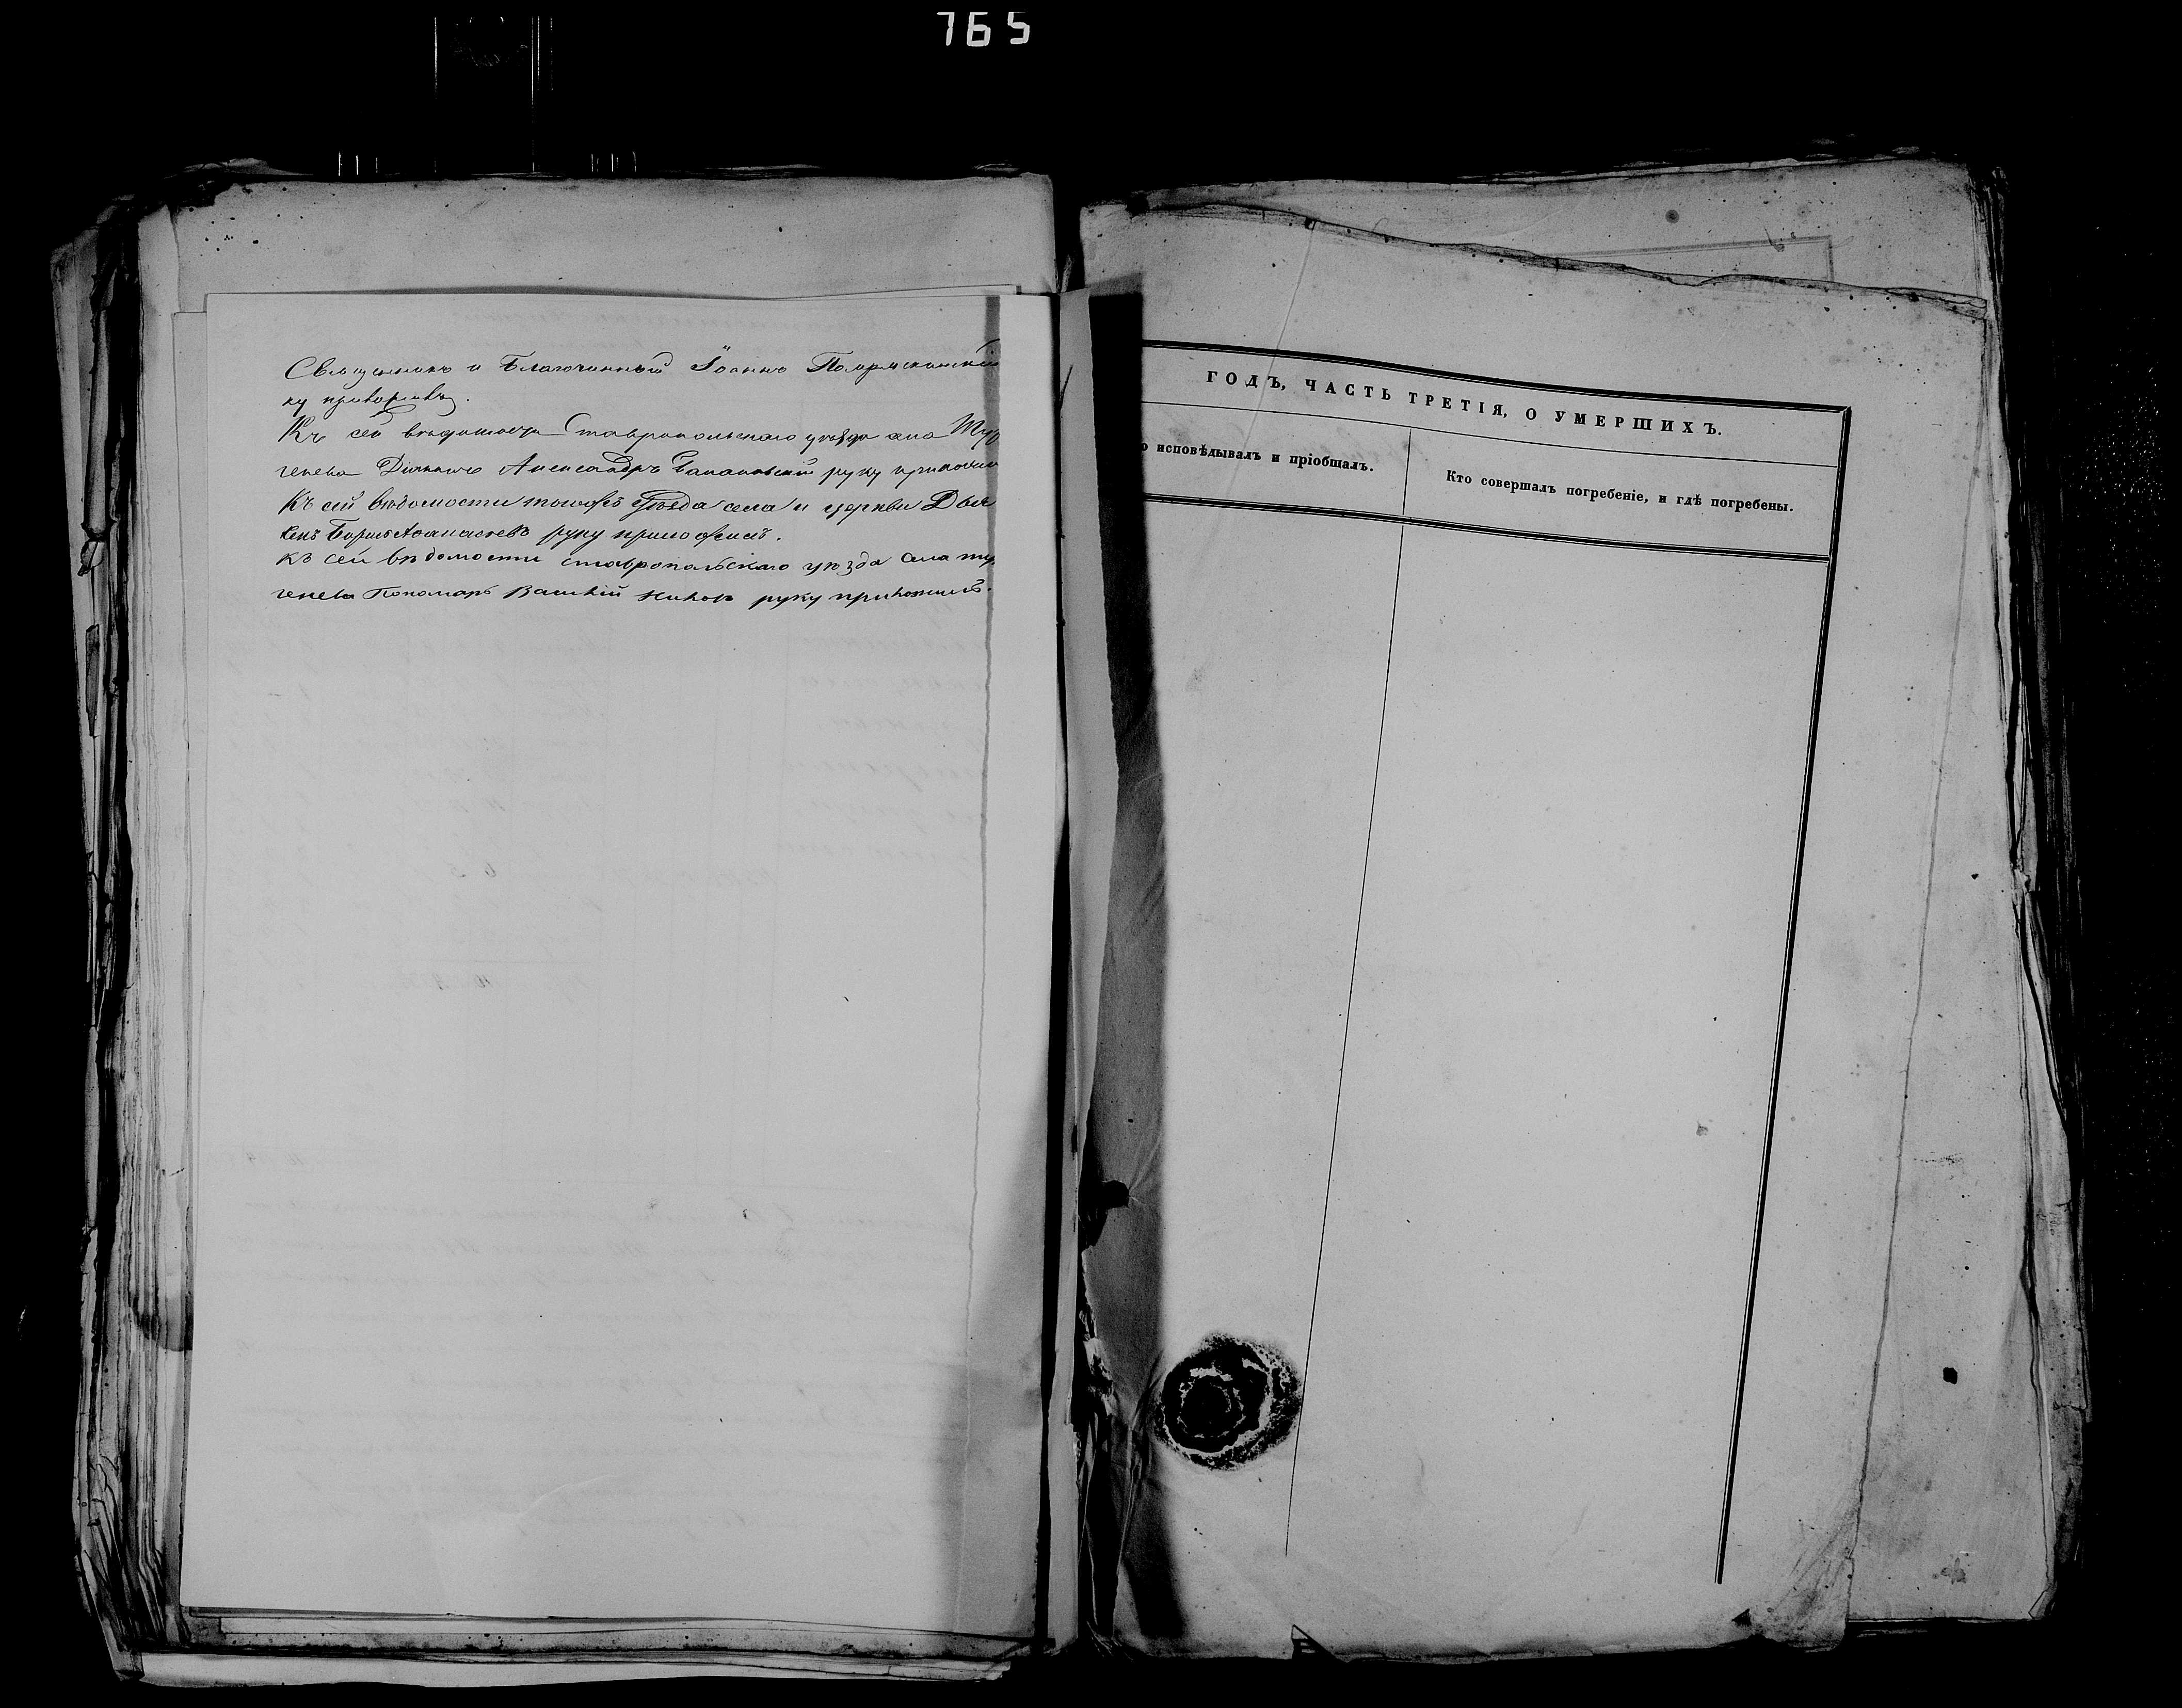 765
Священникъ и Благочинный Іоаннъ
ку приложилъ.
Къ сей вѣдомости Ставропольскаго уѣзда села Тур
генева Діаконъ Александръ руку приложил
Къ сей вѣдомости тогожъ уѣзда села и церкви Дьяч
екъ Борисъ руку приложилъ.
къ сей вѣдомости ставропольскаго уѣзда села тур
генева Пономарь Василій руку приложилъ.
ГОДЪ, ЧАСТЬ ТРЕТІЯ, О УМЕРШИХЪ.
о исповѣдывалъ и пріобщалъ.
Кто совершалъ погребеніе, и гдѣ погребены.